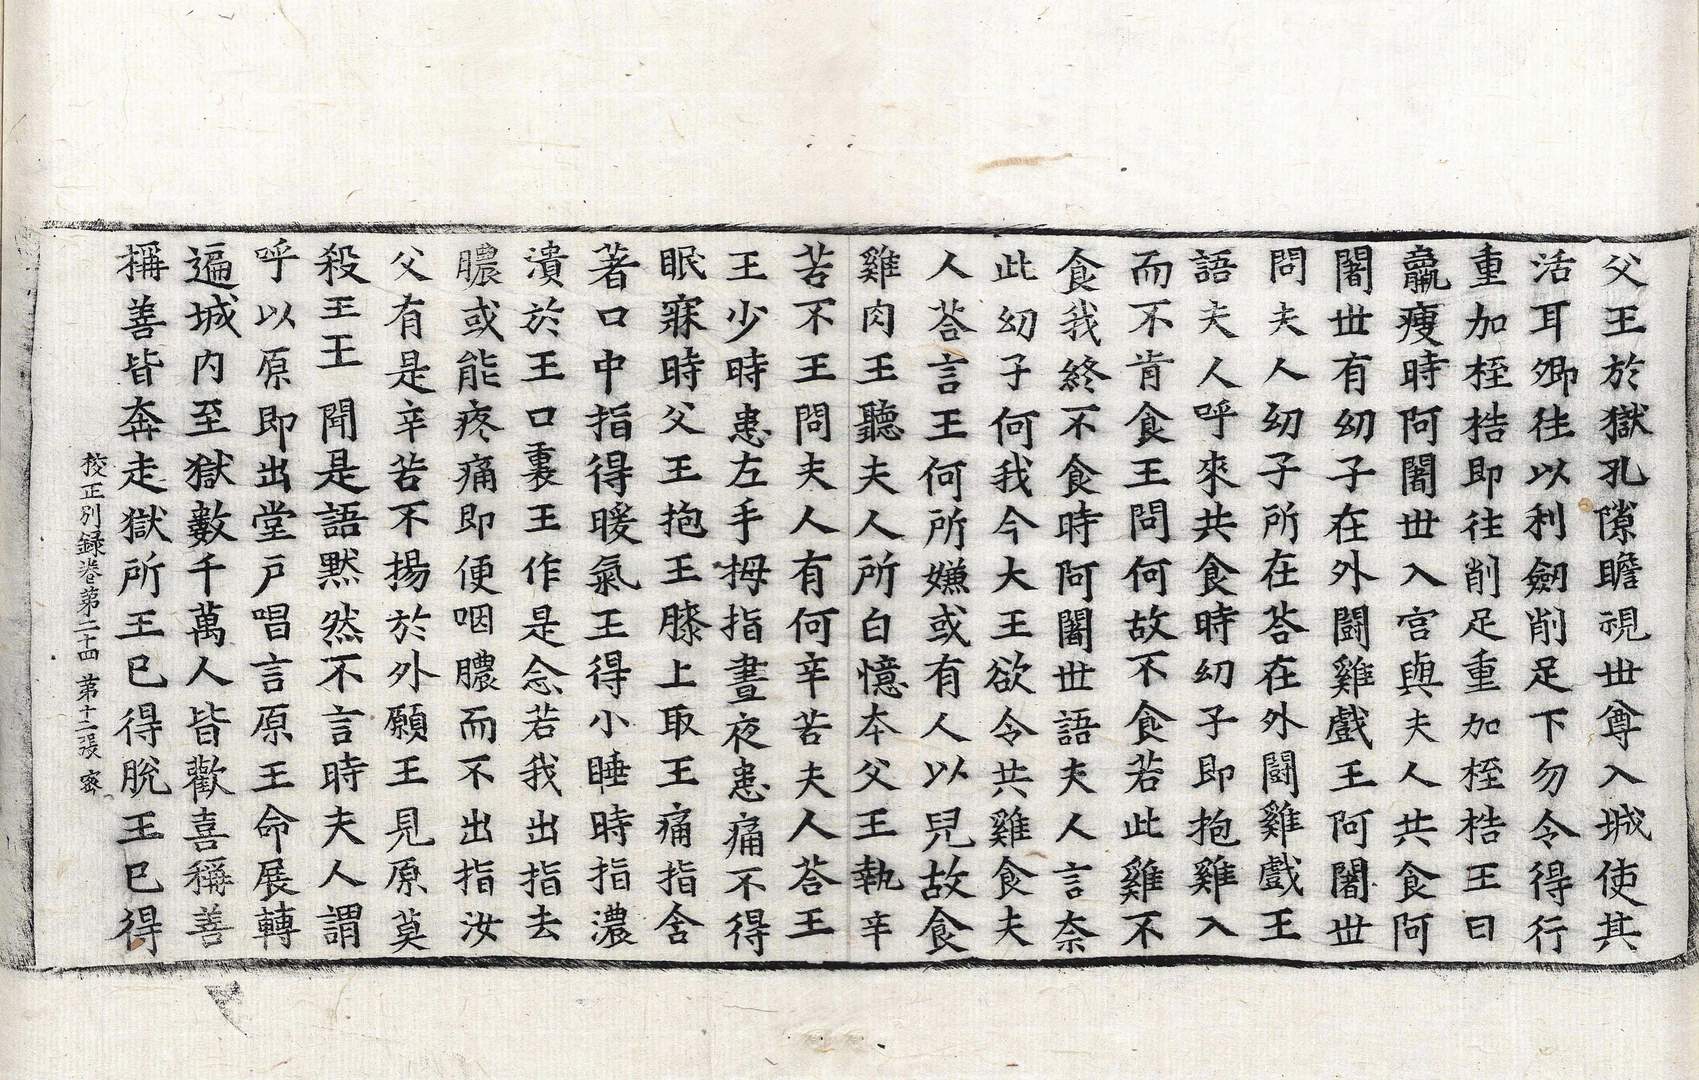 父王於獄孔隙瞻視世尊入城使其
活耳卿往以利劒削足下勿令得行
重加桎梏即往削足重加桎梏王曰
羸瘦時阿闍世入宫與夫人共食阿
闍世有幼子在外鬪雞戲王阿闍世
問夫人幼子所在荅在外鬪雞戲王
語夫人呼來共食時幼子即抱雞入
而不肯食王問何故不食若此雞不
食我終不食時阿闍世語夫人言奈
此幼子何我今大王欲令共雞食夫
人荅言王何所嫌或有人以兒故食
雞肉王聽夫人所白憶夲父王執辛
苦不王問夫人有何辛苦夫人荅王
王少時患左手拇指晝夜患痛不得
眠寐時父王抱王膝上取王痛指含
著口中指得暖氣王得小睡時指濃
潰於王口裏王作是念若我出指去
膿或能疼痛即便咽膿而不出指汝
父有是辛苦不揚於外願王見原莫
殺王王聞是語黙然不言時夫人謂
呼以原即出堂戸唱言原王命展轉
遍城内至獄數千萬人皆歡喜稱善
稱善皆奔走獄所王已得脫王已得
校正別録卷第二十四 第十二張 宻